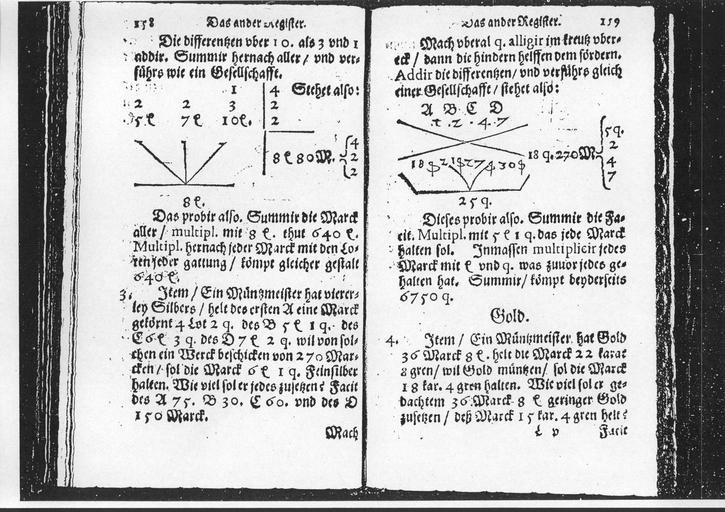 158 Das ander Register.
Die differentzen vber 10. als 3 vnd 1
addir. Summir hernach aller / vnd ver-
führs wie ein Gesellschafft.
1 | 4 Stehet also:
2 2 3 | 2
5 ℓ 7 ℓ 10 ℓ. | 2
8 ℓ 80 M. { 4
2
2
8 ℓ.
Das probir also. Summir die Marck
aller / multipl. mit 8 ℓ. thut 640 ℓ.
Multipl. hernach jeder Marck mit den Lo-
ten jeder gattung / kömpt gleicher gestalt
640 ℓ.
3. Item / Ein Müntzmeister hat vierer-
ley Silbers / helt des ersten A eine Marck
gekörnt 4 Lot 2 q. des B 5 ℓ 1 q. des
C 6 ℓ 3 q. des D 7 ℓ 2 q. wil von sol-
chen ein Werck beschicken von 270 Mar-
cken / sol die Marck 6 ℓ 1 q. Feinsilber
halten. Wie viel sol er jedes zusetzen? Facit
des A 75. B 30. C 60. vnd des D
150 Marck.
Mach
Das ander Register. 159
Mach vberal q. alligir im kreutz vber-
eck / dann die hindern helffen dem fördern.
Addir die differentzen / vnd verführs gleich
einer Gesellschafft / stehet also:
A B C D
2 4 7
18 21 27 30
18 q. 270 M { 5 q.
2
4
7
25 q.
Dieses probir also. Summir die Fa-
cit. Multipl. mit 5 ℓ 1 q. das jede Marck
halten sol. Inmassen multiplicir jedes
Marck mit ℓ vnd q. was zuuor jedes ge-
halten hat. Summir / kömpt beyderseits
6750 q.
Gold.
4. Item / Ein Müntzmeister hat Gold
36 Marck 8 ℓ. helt die Marck 22 karat
8 gren / wil Gold müntzen / sol die Marck
18 kar. 4 gren halten. Wie viel sol er ge-
dachtem 36 Marck 8 ℓ geringer Gold
zusetzen / deß Marck 15 kar. 4 gren helt?
L v Facit